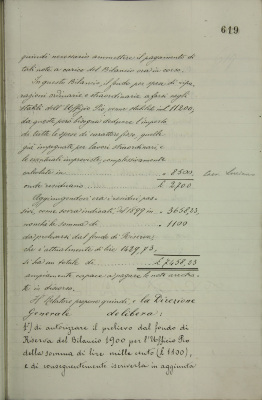 619
quindi necessario ammettere il pagamento di
tali note a carico del Bilancio ora in corso.
In questo Bilancio, il fondo per spese di ripa-
razioni ordinarie e straordinarie a farsi negli
stabili dell'Ufficio Pio, venne stabilito in £ 11200,
da questo, però bisogna dedurre l'importo
di tutte le spese di carattere fisso, quelle
già impegnate per lavori straordinari e
le eventuali impreviste, complessivamente
calcolate in " 8500.
onde resterebbero £ 2700.
Aggiungendovi ora i residui pas-
sivi, come sovra indicati, del 1899 in " 3658,23,
nonché la somma di " 1100
da prelevarsi dal fondo di Riserva;
che è attualmente di lire 1629,73,
si ha un totale di £ 7458,23
ampiamente capace a pagare le note
in discorso.
Il Relatore propone quindi, e la Direzione
Generale delibera:
1°) di autorizzare il prelievo dal fondo di
Riserva del Bilancio 1900 per l'Ufficio Pio
della somma di lire mille cento (£ 1100),
e di conseguentemente iscriverla in aggiunta